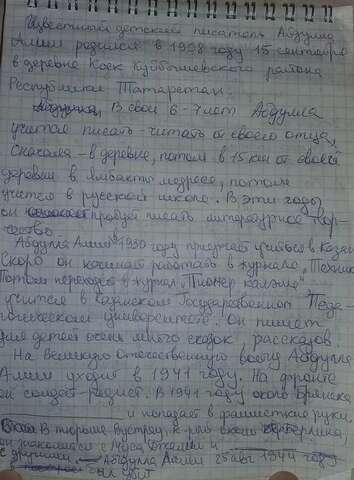 Известный детский писатель Абдулла
Алиш родился в 1908 году 15 сентября
в деревне Көек Куйбышевского района
Республики Татарстан.
Абдулла, В свои 6-7 лет Абдулла
учится писать-читать от своего отца,
Сначала - в деревне, потом в 15 км от своей
деревни в медресе, потом
учится в русской школе. В эти годы
он пробует писать литературное твор-
чество.
Абдулла Алиш 1930 году приезжает учиться в Казань
Скоро он начинает работать в журнале „Техника"
Потом переходит в журнал „Пионер каләме",
учится в Казанском Государственном Педа-
гогическом университете. Он пишет
для детей очень много сказок, рассказов.
На Великую Отечественную войну Абдулла
Алиш уходит в 1941 году. На фронте
он солдат-радист. В 1941 году около Брянска
и попадает в фашистские руки.
В тюрьме
он знакомится с Муса Джалил и
с другими. Абдулла Алиш 25 авг 1944 году
был убит